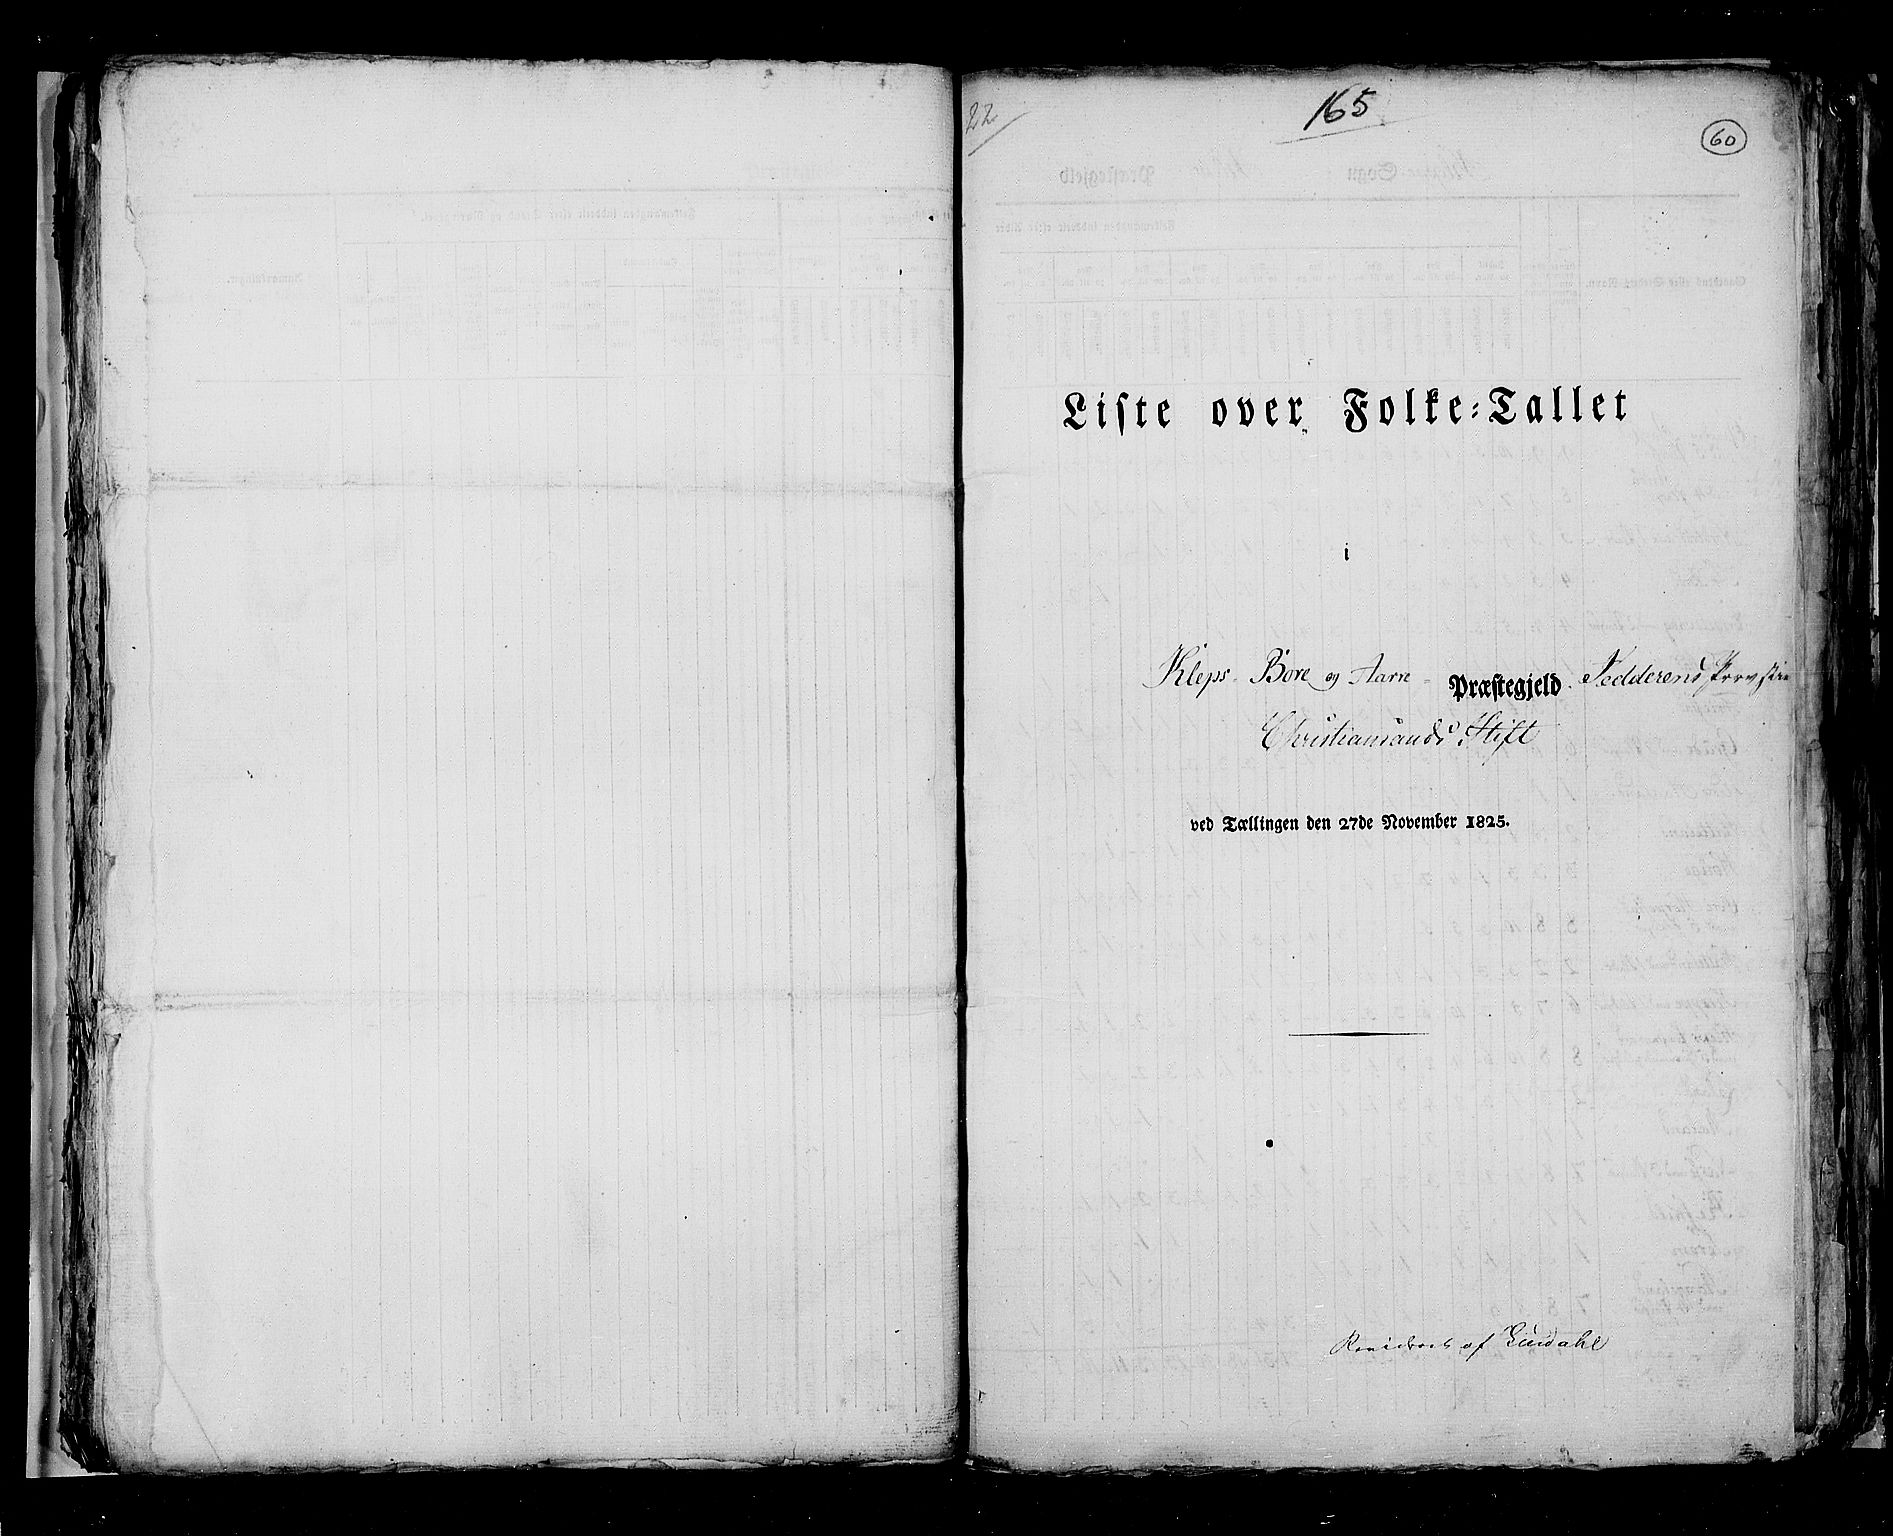 22
165
60
Liste over Folke=Tallet
i
Kleps- Bore og Aarre - Præstegjeld. Jedderens Provstie
Christiansands Stift
ved Tællingen den 27de November 1825.
Revideret af